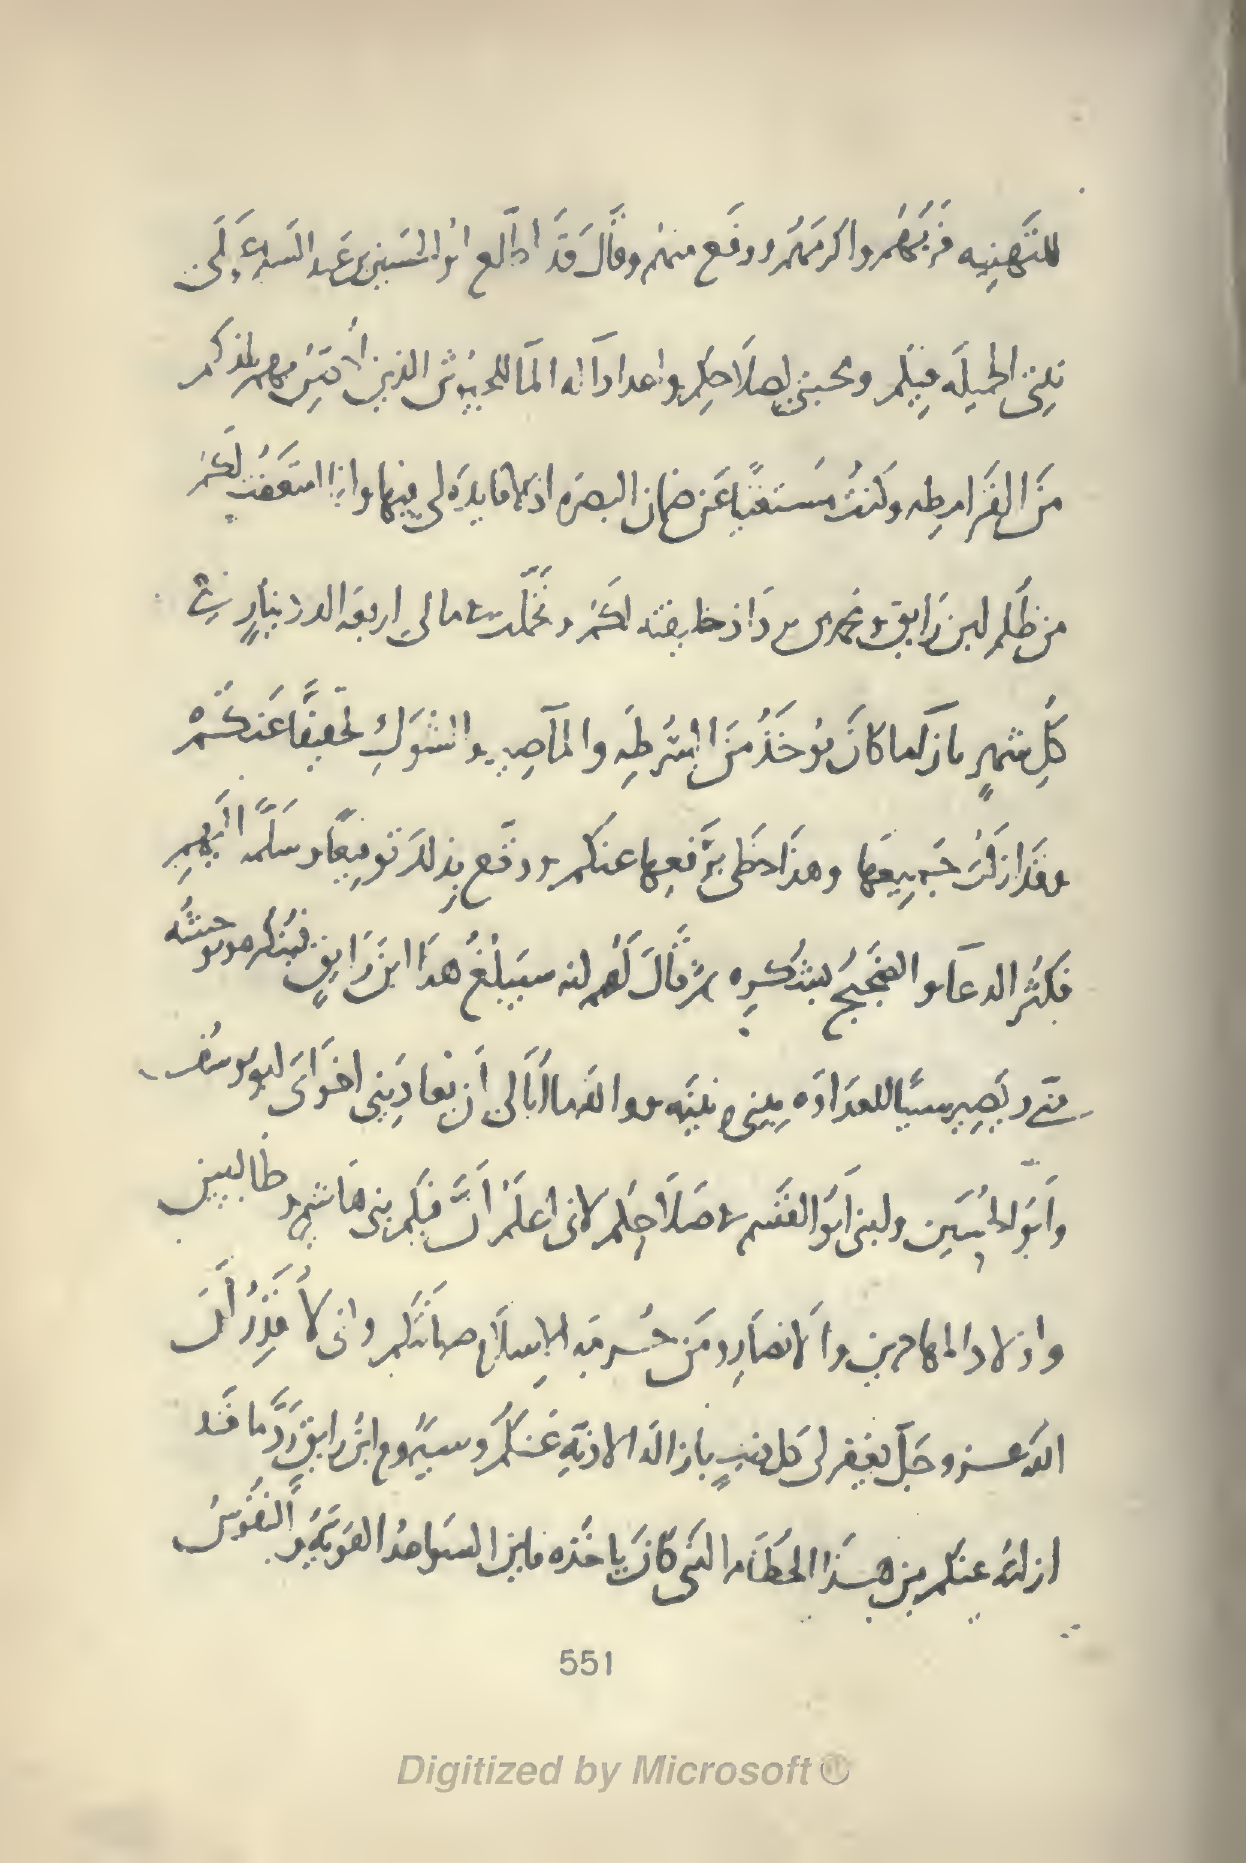 للتهنيه فقربهم واكرمهم ورفع منهم وقال قد اطلع ابو الحسين بن عبد السلام على
نيتى الجميله فيكم ومحبتى لصلاحكم واعدادى اله الما للجيوش الذين
من القرامطه وكنت مستعفيا عن ضمان البصره اذ لا فايده لى فيها وانما استعفت لكم
من ظلم ابن رايق وتحملت مالى اربعه الف دينار فى
كل شهر بازآ ما كان يوخذ من الشرطه والمآصير والشوك تخفيفا عنكم
وقد ازلت جميعها وهذا خطى برفعها عنكم ووقع بذلك توقيعا وسلمه اليهم
فكثر الدعآ والضجيج بشكره ثم قال لهم انه سيبلغ هذا ابن رايق فينكره ويوحشه
منى ويصير سببا للعداوه بينى وبينه ووالله ما ابالى ان يعادينى اخواى ابو يوسف
وابو الحسين وابنى ابو القسم فى صلاحكم لانى اعلم ان فيكم بنى هاشم وطالبيين
واولاد المهاجرين والانصار ومن حرمه الاسلام صيانتكم وانى لاقدر ان
الله عز وجل يغفر لى كل ذنب بازاله الاذيه عنكم وسيروم ابن رايق رد ما قد
ازلته عنكم من هذا الحطام التى كان ياخذه فاين السواعد القويه والنفوس
551
Digitized by Microsoft ®